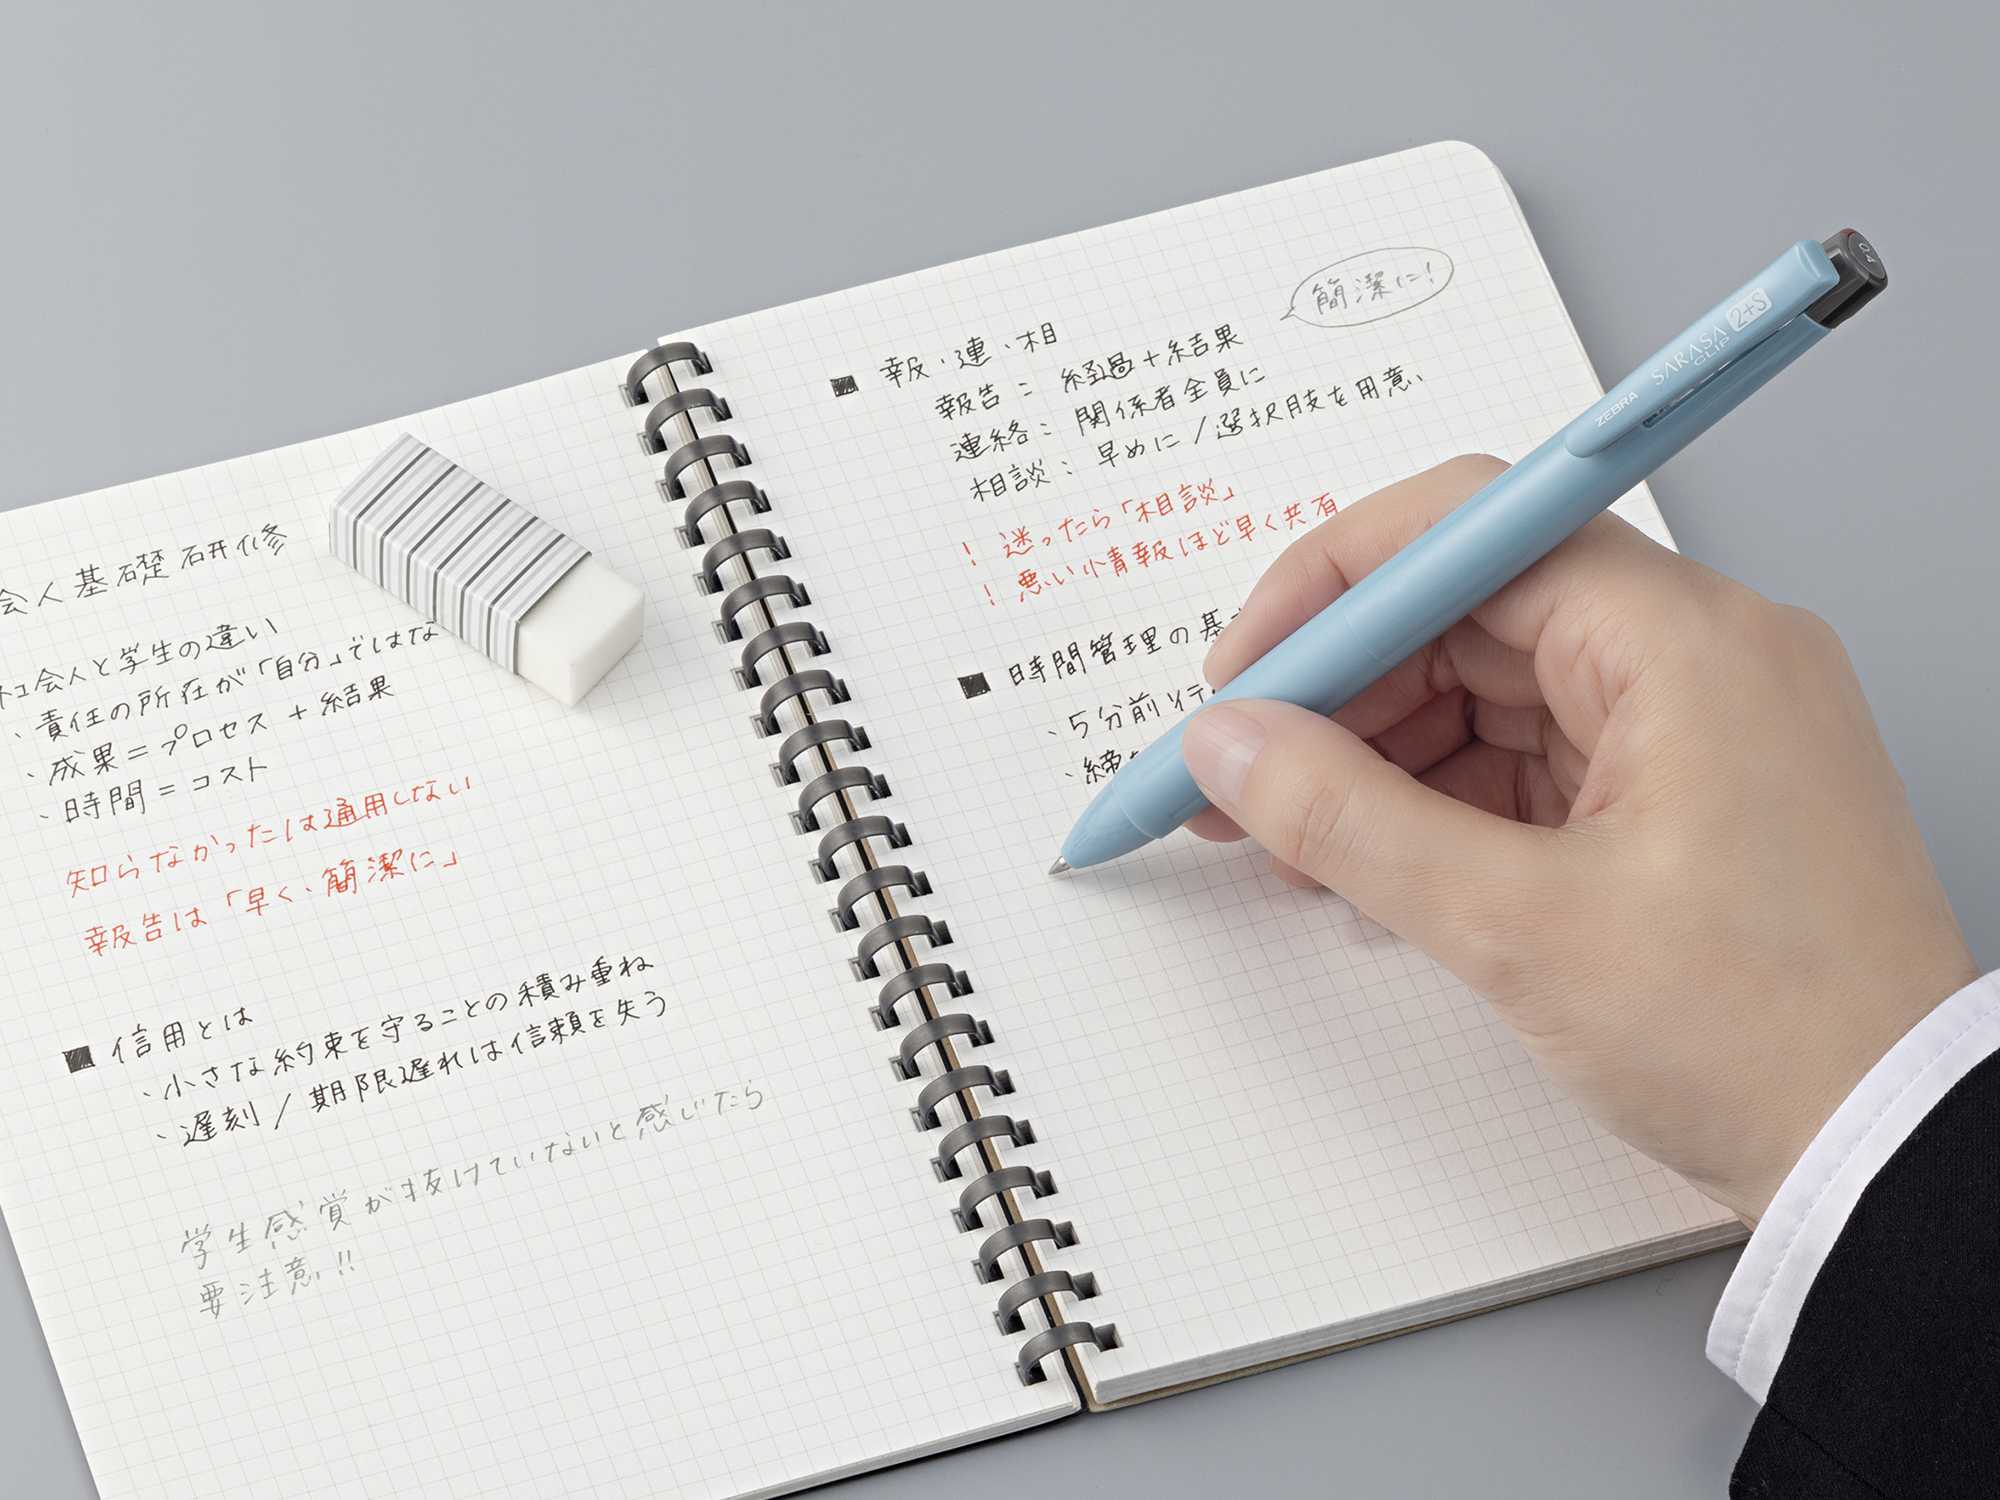 会人基礎研修
社会人と学生の違い
・責任の所在が「自分」ではな
・成果=プロセス+結果
・時間=コスト
知らなかったは通用しない
報告は「早く、簡潔に」
■ 信用とは
・小さな約束を守ることの積み重ね
・遅刻/期限遅れは信頼を失う
学生感覚が抜けていないと感じたら
要注意!!
■ 報・連・相
簡潔に!
報告: 経過+結果
連絡: 関係者全員に
相談: 早めに/選択肢を用意
! 迷ったら「相談」
! 悪い情報ほど早く共有
■ 時間管理の基
・5分前行
・締
ZEBRA SARASA CLIP 2+S
0.4